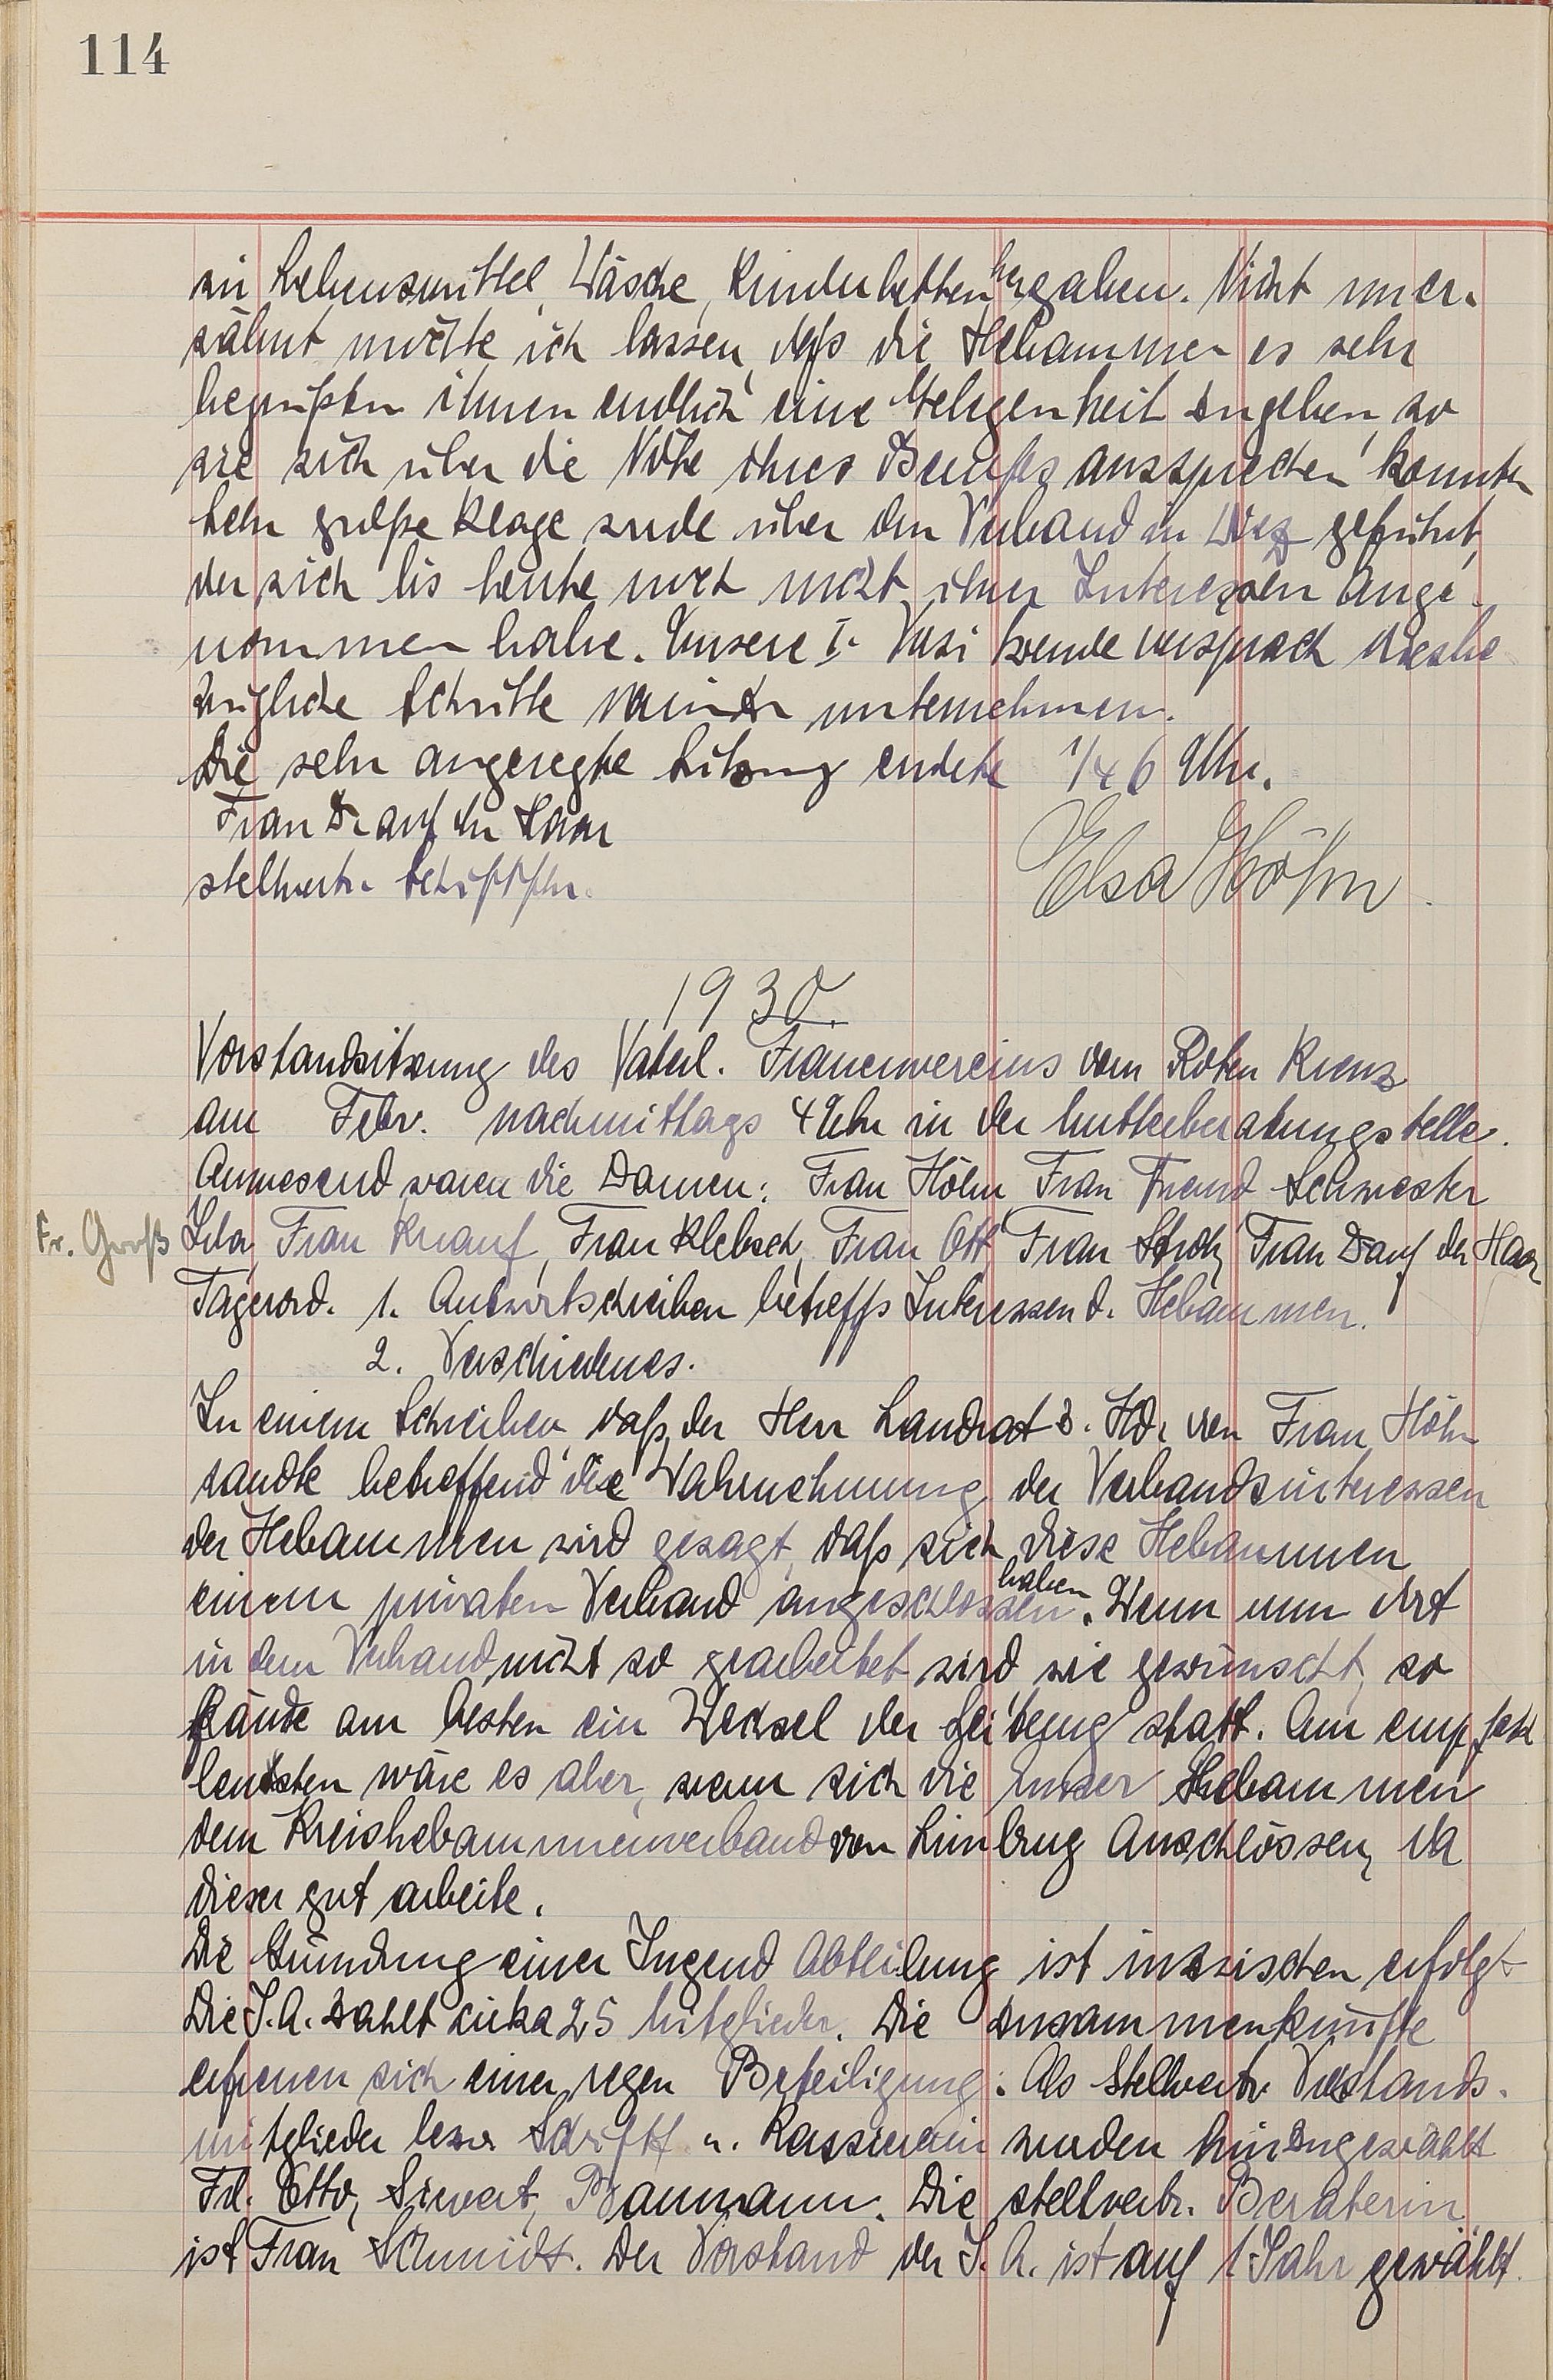 114
in Lebensmittel, Wäsche, Kinderbetten hergaben. Nicht uner-
wähnt möchte ich lassen, daß die Hebammen es sehr
begrüßten ihnen endlich eine Gelegenheit zu geben, wo
sie sich über die Nöte ihres Berufes aussprechen konnten
Sehr große Klage wurde über den Verband in Diez geführt,
der sich bis heute noch nicht ihrer Interessen ange
nommen habe. Unsere I. Vorsitzende versprach diesbe
zügliche Schritte zu unternehmen.
Die sehr angeregte Sitzung endete 1/4 6 Uhr.
Frau D. auf der Haar
stellvertr. Schriftfhr.
Elsa Höhn.
1930.
Vorstandsitzung des Vaterl. Frauenvereins vom Roten Kreuz
am Febr. nachmittags 4 Uhr in der Mutterberatungsstelle.
Anwesend waren die Damen: Frau Höhn Frau Freund Schwester
Fr. Groß
Frau Knauf, Frau Klebsch, Frau Ott Frau Stroh, Frau D auf der Haar
Tagesord. 1. Antwortschreiben betreffs Interessen d. Hebammen.
2. Verschiedenes.
In einem Schreiben, daß der Herr Landrat z. Hd. von Frau Höhn
sandte betreffend die Wahrnehmung der Verbandsinteressen
der Hebammen wird gesagt, daß sich diese Hebammen
einem privaten Verband angeschlossen haben. Wenn nun dort
in dem Verband nicht so gearbeitet wird wie gewünscht, so
fände am besten ein Wechsel der Leitung statt. Am empfeh
lendsten wäre es aber, wenn sich die Hebammen
dem Kreishebammenverband von Limburg anschlössen, da
dieser gut arbeite.
Die Gründung einer Jugend Abteilung ist inzwischen erfolgt
Die J. A. zahlt cirka 25 Mitglieder. Die Zusammenkünfte
erfreuen sich einer regen Beteiligung. Als Stellvertr. Vorstands-
mitglieder bezw. Schriftf u. Kassiererin wurden hinzugewählt
Frl. Otto, Siewert, Baumann. Die stellvertr. Beraterin
ist Frau Schmidt. Der Vorstand der J. A. ist auf 1 Jahr gewählt.